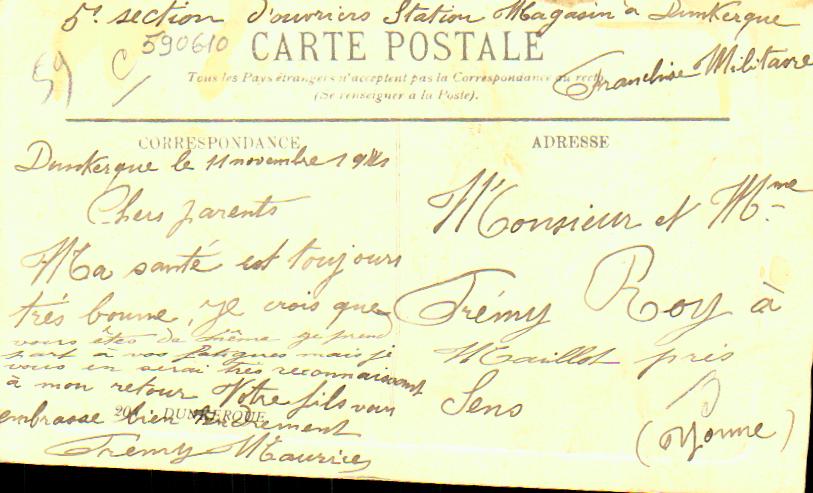 5e section d'ouvriers Station Magasin à Dunkerque
590610
59 C/
CARTE POSTALE
Tous les Pays étrangers n'acceptent pas la Correspondance au recto
(Se renseigner à la Poste).
Franchise Militaire
CORRESPONDANCE
Dunkerque le 11 novembre
Chers parents
Ma santé est toujours
très bonne, je crois que
vous êtes de même je prend
part à vos fatigues mais je
vous en serai très reconnaissant
à mon retour Votre fils vous
embrasse bien tendrement
DUNKERQUE
Frémy Maurice
ADRESSE
Monsieur et Mme
Frémy Roy à
Maillot près
Sens
(Yonne)